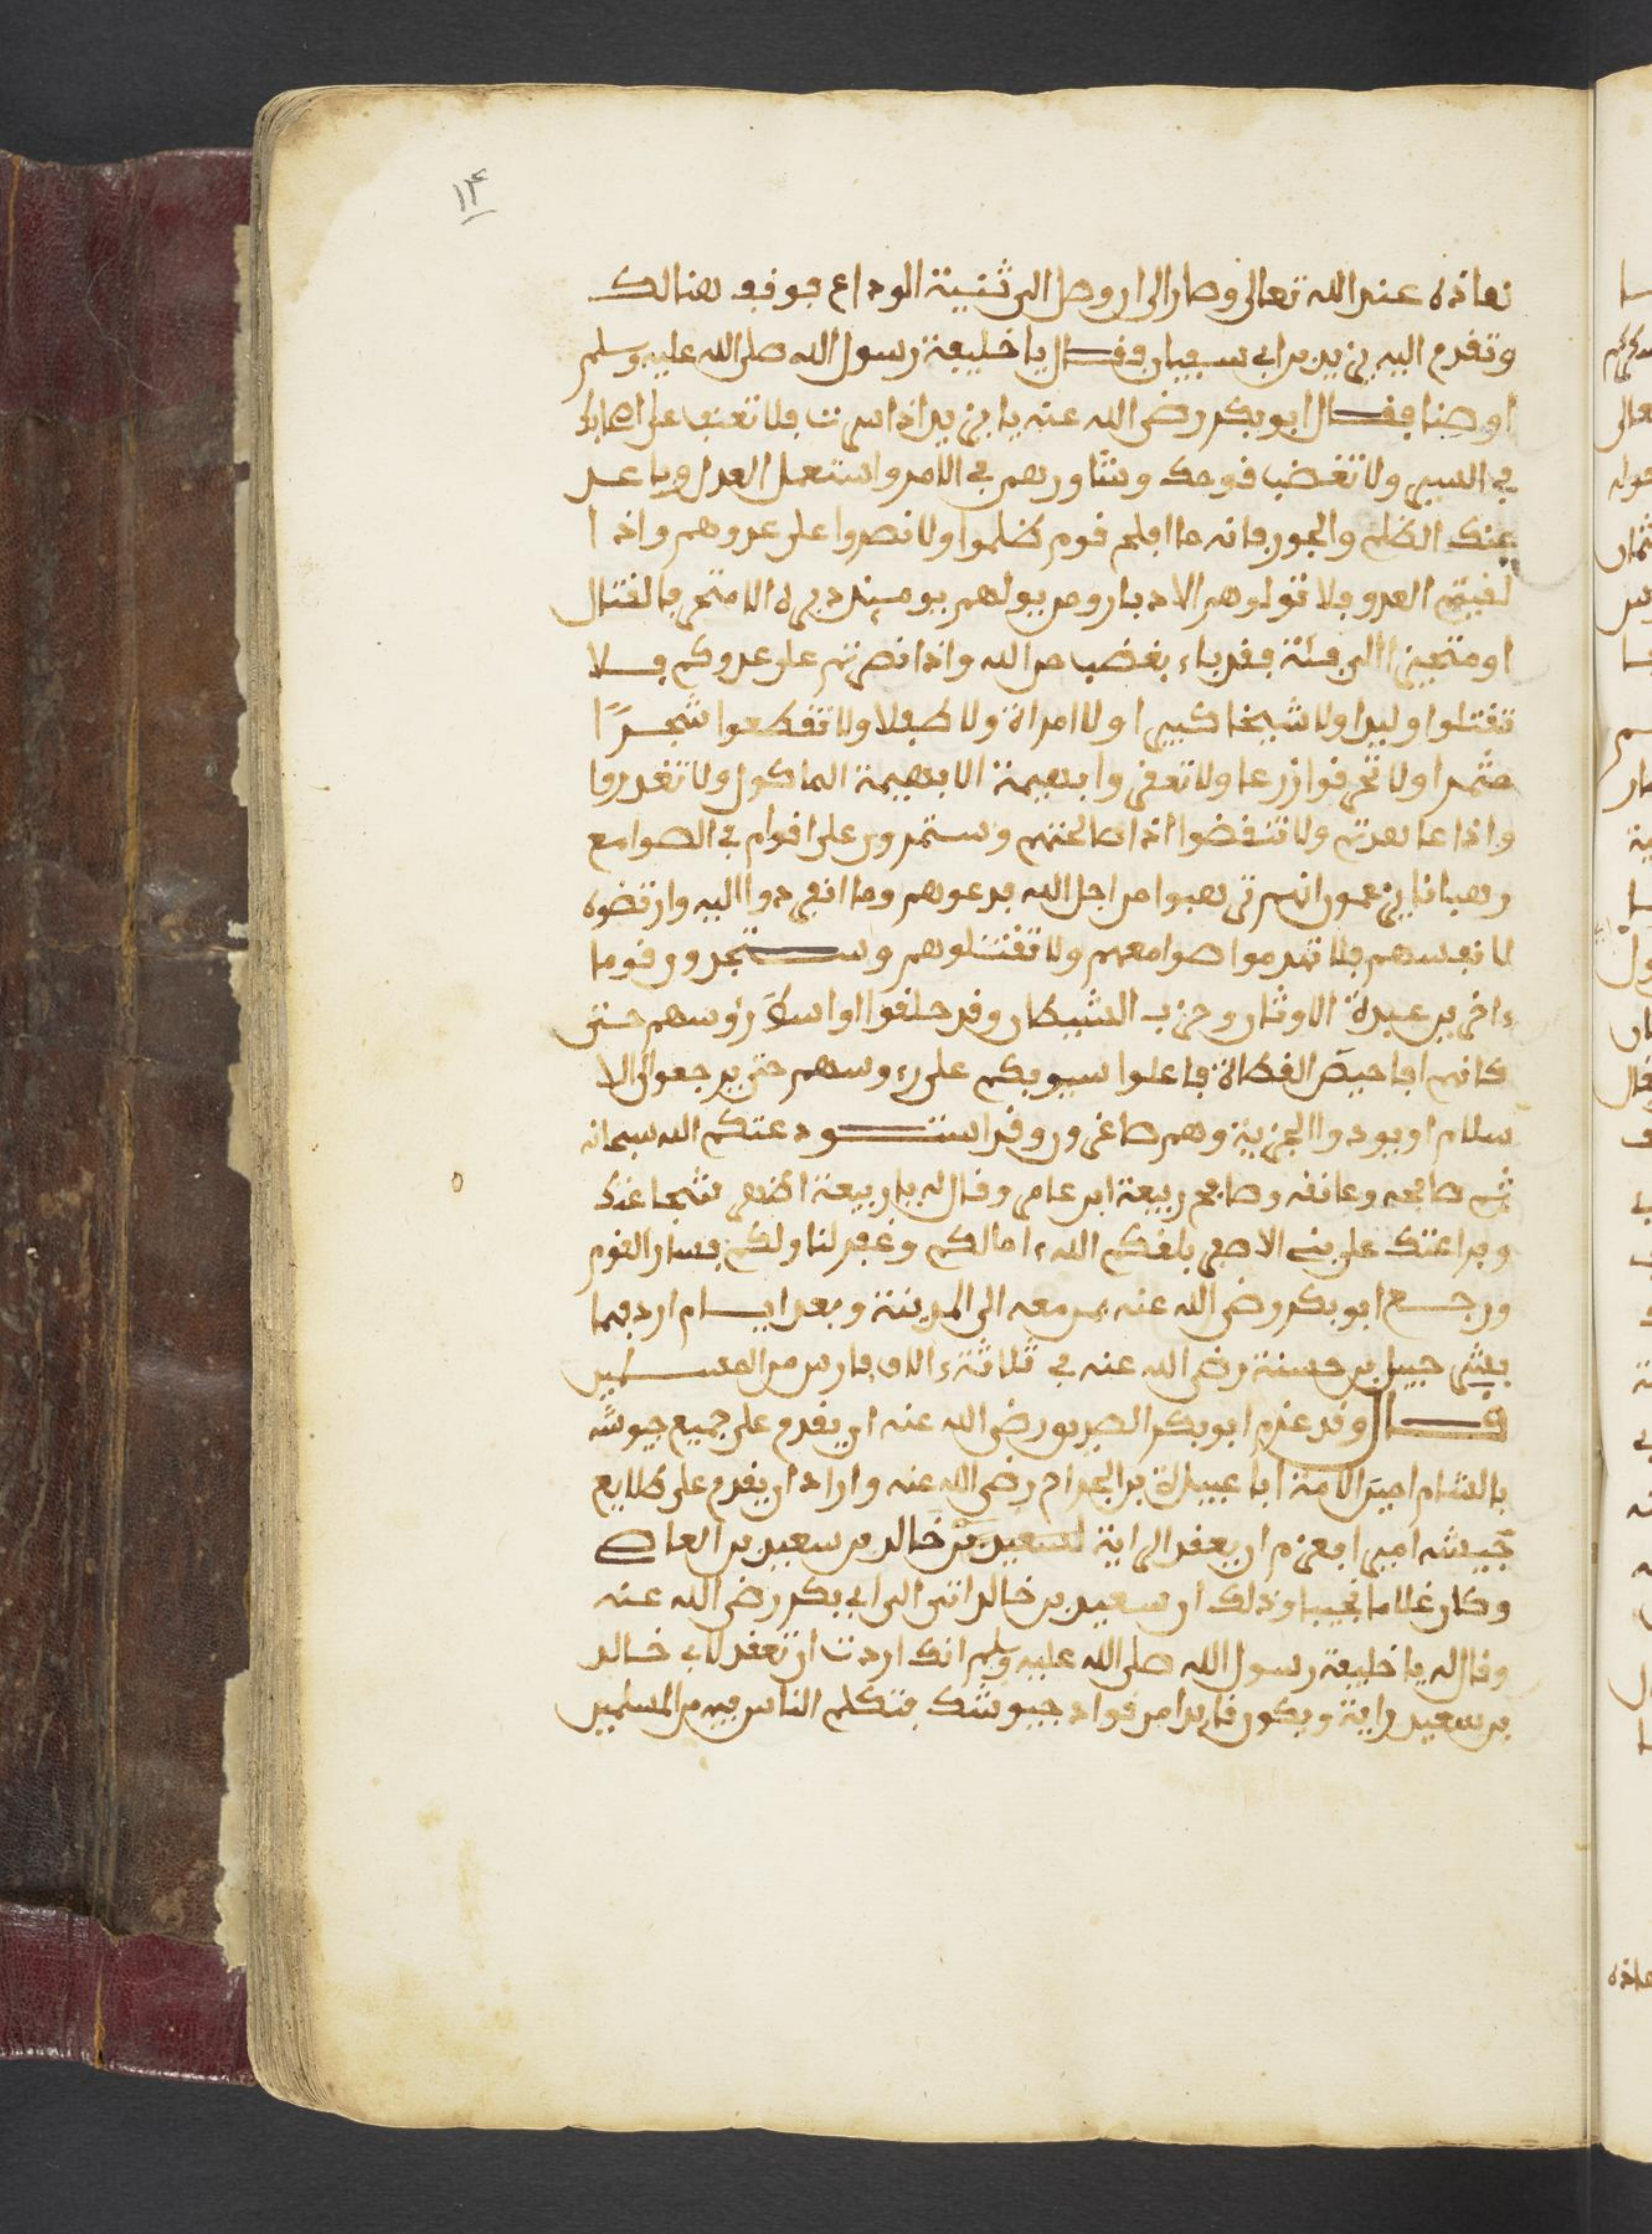 ١٤
نعاذه عند الله تعالى وصار الى ان وصل الى ثنية الوداع فوقف هنالك
وتقدم اليه يزيد بن ابي سفيان فقال يا خليفة رسول الله صلى الله عليه وسلم
اوصنا فقال ابو بكر رضي الله عنه يا يزيد اذا سرت فلا تعنف على اصحابك
في السير ولا تغضب قومك وشاورهم في الامر واستعمل العدل وباعد
عنك الظلم والجور فانه ما افلح قوم ظلموا ولا نصروا على عدوهم واذا
لقيتم العدو فلا تولوهم الادبار ومن يولهم يومئذ دبره الا متحرفا لقتال
او متحيزا الى فئة فقد باء بغضب من الله واذا نصرتم على عدوكم فلا
تقتلوا وليدا ولا شيخا كبيرا ولا امراة ولا طفلا ولا تقطعوا شجرًا
مثمرا ولا تحرقوا زرعا ولا تعقروا بهيمة الا بهيمة الماكول ولا تغدروا
واذا عاهدتم ولا تنقضوا اذا صالحتم وستمرون على اقوام في الصوامع
رهبانا يزعمون انهم ترهبوا من اجل الله فدعوهم وما انفردوا اليه وارتضوه
لانفسهم فلا تهدموا صوامعهم ولا تقتلوهم وستجدون قوما
ءاخرين عبدة الاوثان وحزب الشيطان وقد حلقوا اواسط رؤسهم حتى
كانهم افاحيص القطاة فاعلوا سيوفكم على رءوسهم حتى يرجعوا الى الا
سلام او يودوا الجزية وهم صاغرون وقد استودعتكم الله سبحانه
ثم صافحه وعانقه وصافح ربيعة ابن عامر وقال له يا ربيعة اظهر شجاعتك
وبراعتك على بني الاصفر بلغكم الله ءامالكم وغفر لنا ولكم فسار القوم
ورجع ابو بكر رضي الله عنه بمن معه الى المدينة وبعد ايام اردفهما
بشرحبيل بن حسنة رضي الله عنه في ثلاثة ءالاف فارس من المسلمين
قال وقد عزم ابو بكر الصديق رضي الله عنه ان يقدم على جميع جيوشه
بالشام امين الامة ابا عبيدة بن الجراح رضي الله عنه واراد ان يقدم على طلايع
جيشه اميرا فعزم ان يعقد الراية لسعيد بن خالد بن سعيد بن العاص
وكان غلاما نجيبا وذلك ان سعيد بن خالد اتى الى ابي بكر رضي الله عنه
وقال له يا خليفة رسول الله صلى الله عليه وسلم انك اردت ان تعقد لابي خالد
بن سعيد راية ويكون قايدا من قواد جيوشك فتكلم الناس فيه من المسلمين